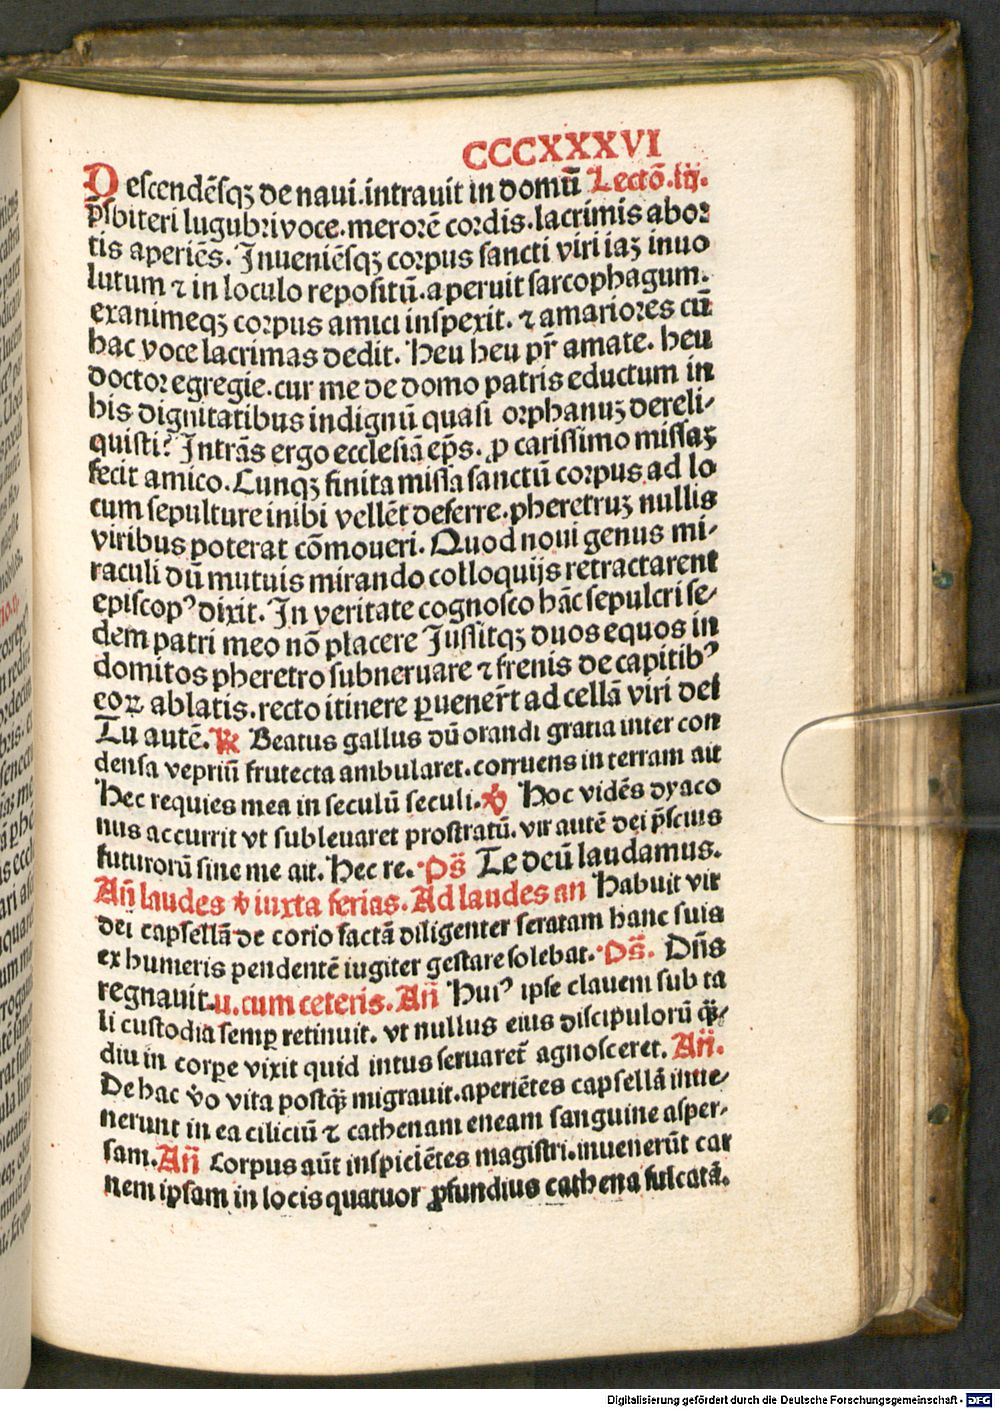 CCCXXXVI
Descendēſqꝫ de naui.intrauit in domū Lectō.iij.
p̄ſbiteri lugubꝛi voce.meroꝛē coꝛdis.lacrimis aboꝛ
tis aperiēs. Jnueniēſqꝫ coꝛpus ſancti viri iaꝫ inuo
lutum ⁊ in loculo repoſitū.aperuit ſarcophagum.
exanimeqꝫ coꝛpus amici inſpexit. ⁊ amarioꝛes cū
hac voce lacrimas dedit. Heu heu pr̄ amate. heu
doctoꝛ egregie.cur me de domo patris eductum in
his dignitatibus indignū quaſi oꝛphanuꝫ dereli⸗
quiſti? Jntrās ergo eccleſiā ep̄s. ꝓ cariſſimo miſſaꝫ
fecit amico. Cunqꝫ finita miſſa ſanctū coꝛpus ad lo
cum ſepulture inibi vellēt deferre.pheretruꝫ nullis
viribus poterat cōmoueri. Quod noui genus mi⸗
raculi dū mutuis mirando colloquijs retractarent
epiſcopꝰ dixit. Jn veritate cognoſco hāc ſepulcri ſe⸗
dem patri meo nō placere Juſſitqꝫ duos equos in
domitos pheretro ſubneruare ⁊ frenis de capitibꝰ
eoꝝ ablatis.recto itinere ꝑuener̄t ad cellā viri dei
Tu autē. ℟ Beatus gallus dū orandi gratia inter con
denſa vepriū frutecta ambularet.corruens in terram ait
Hec requies mea in ſeculū ſeculi. ℣ Hoc vidēs dyaco
nus accurrit vt ſubleuaret proſtratū.vir autē dei p̄ſcius
futurorū ſine me ait. Hec re. Ps̄ Te deū laudamus.
An̄ laudes ℣ iuxta ferias. Ad laudes an Habuit vir
dei capſellā de corio factā diligenter ſeratam hanc ſuis
ex humeris pendentē iugiter geſtare ſolebat. Ps̄. Dn̄s
regnauit.u.cum ceteris. An̄ Huiꝰ ipſe clauem ſub ta
li cuſtodia ſemꝑ retinuit. vt nullus eius diſcipulorū qꝫ̄⸗
diu in corpe vixit quid intus ſeruaret̄ agnoſceret. An̄.
De hac v̄o vita poſtqꝫ̄ migrauit.aperiētes capſellā inue⸗
nerunt in ea ciliciū ⁊ cathenam eneam ſanguine aſper⸗
ſam. An̄ Corpus aūt inſpiciētes magiſtri.inuenerūt car
nem ipſam in locis quatuor ꝓfundius cathena ſulcatā.
Digitalisierung gefördert durch die Deutsche Forschungsgemeinschaft - DFG